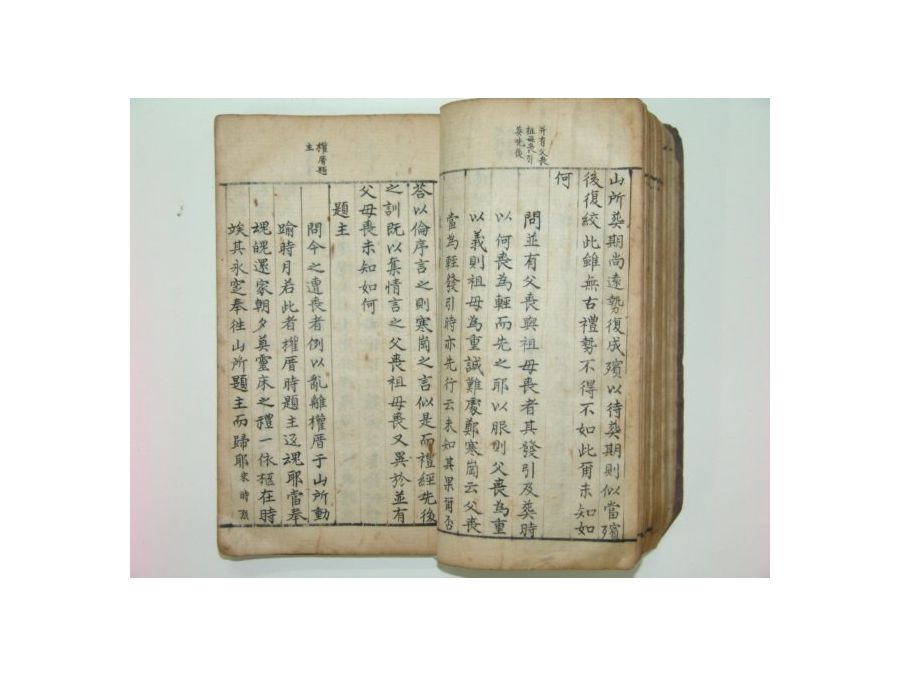 并有父喪
祖母喪引
葬先後
山所葬期尚遠勢復成殯以待葬期則似當殯
後復絞此雖無古禮勢不得不如此爾未知如
何
問並有父喪與祖母喪者其發引及葬時
以何喪為輕而先之耶以服則父喪為重
以義則祖母為重誠難處鄭寒岡云父喪
當為輕發引時亦先行云未知其果爾否
權厝題
主
答以倫序言之則寒岡之言似是而禮經先後
之訓既以奪情言之父喪祖母喪又異於並有
父母喪未知如何
題主
問今之遭喪者例以亂離權厝于山所動
踰時月若此者權厝時題主返魂耶當奉
魂魄還家朝夕奠靈床之禮一依柩在時
竢其永窆奉往山所題主而歸耶宋時烈